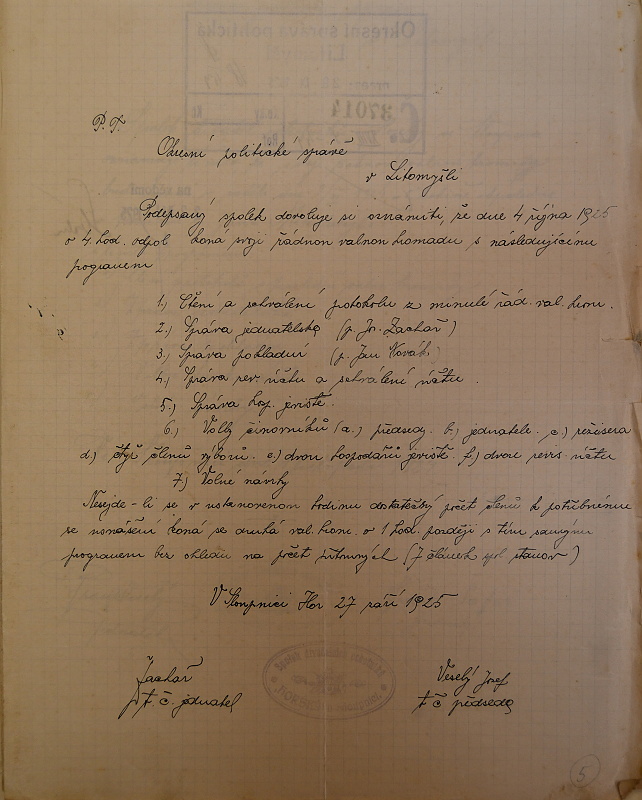 P. T.
Okresní politické správě
v Litomyšli
Podepsaný spolek dovoluje si oznámiti, že dne 4 října 1925
o 4 hod. odpol koná svoji řádnou valnou hromadu s následujícímu
programem
1.) Čtení a schválení protokolu z minulé řád. val. hrom.
2.) Správa jednatelská (p. Jr. Zachař)
3.) Správa pokladní (p. Jan Novák)
4.) Správa rev. účtu a schválení účtu.
5.) Správa hosp. jeviště.
6.) Volby činovníků (a.) předsedy. b.) jednatele. c.) režisera
d.) čtyř členů výborů. e.) dvou hospodářů jeviště f.) dvou revis. účtu
7.) Volné návrhy
Nesejde-li se v ustanovenou hodinu dostatečný počet členů k potřebnému
se usnášení koná se druhá val. hrom. o 1 hod. později s tím samým
programem bez ohledu na počet přítomných (7 článek spol stanov)
V Sloupnici Hor 27 září 1925
Zachař
t. č. jednatel
Veselý Josef
t č předseda
5
Okresní správa politická
37014